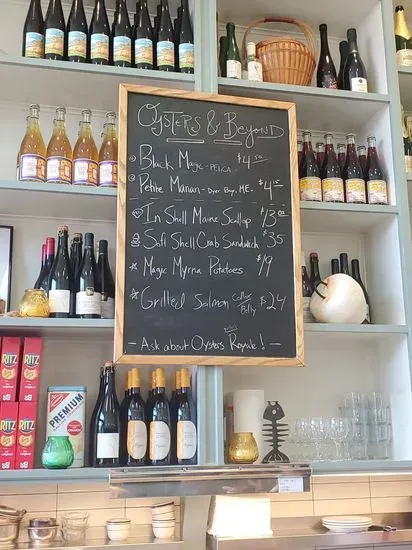 Oysters & Beyond
Black Magic - P.E.I.CA $4.50
Petite Manan - Dyer Bay, ME. $4.15
In Shell Maine Scallop $13.00
Soft Shell Crab Sandwich $35
Magic Myrna Potatoes $19
Grilled Salmon Collar Belly $24
- Ask about Oysters Royale! -
RITZ
RITZ
RITZ
RITZ
PREMIUM